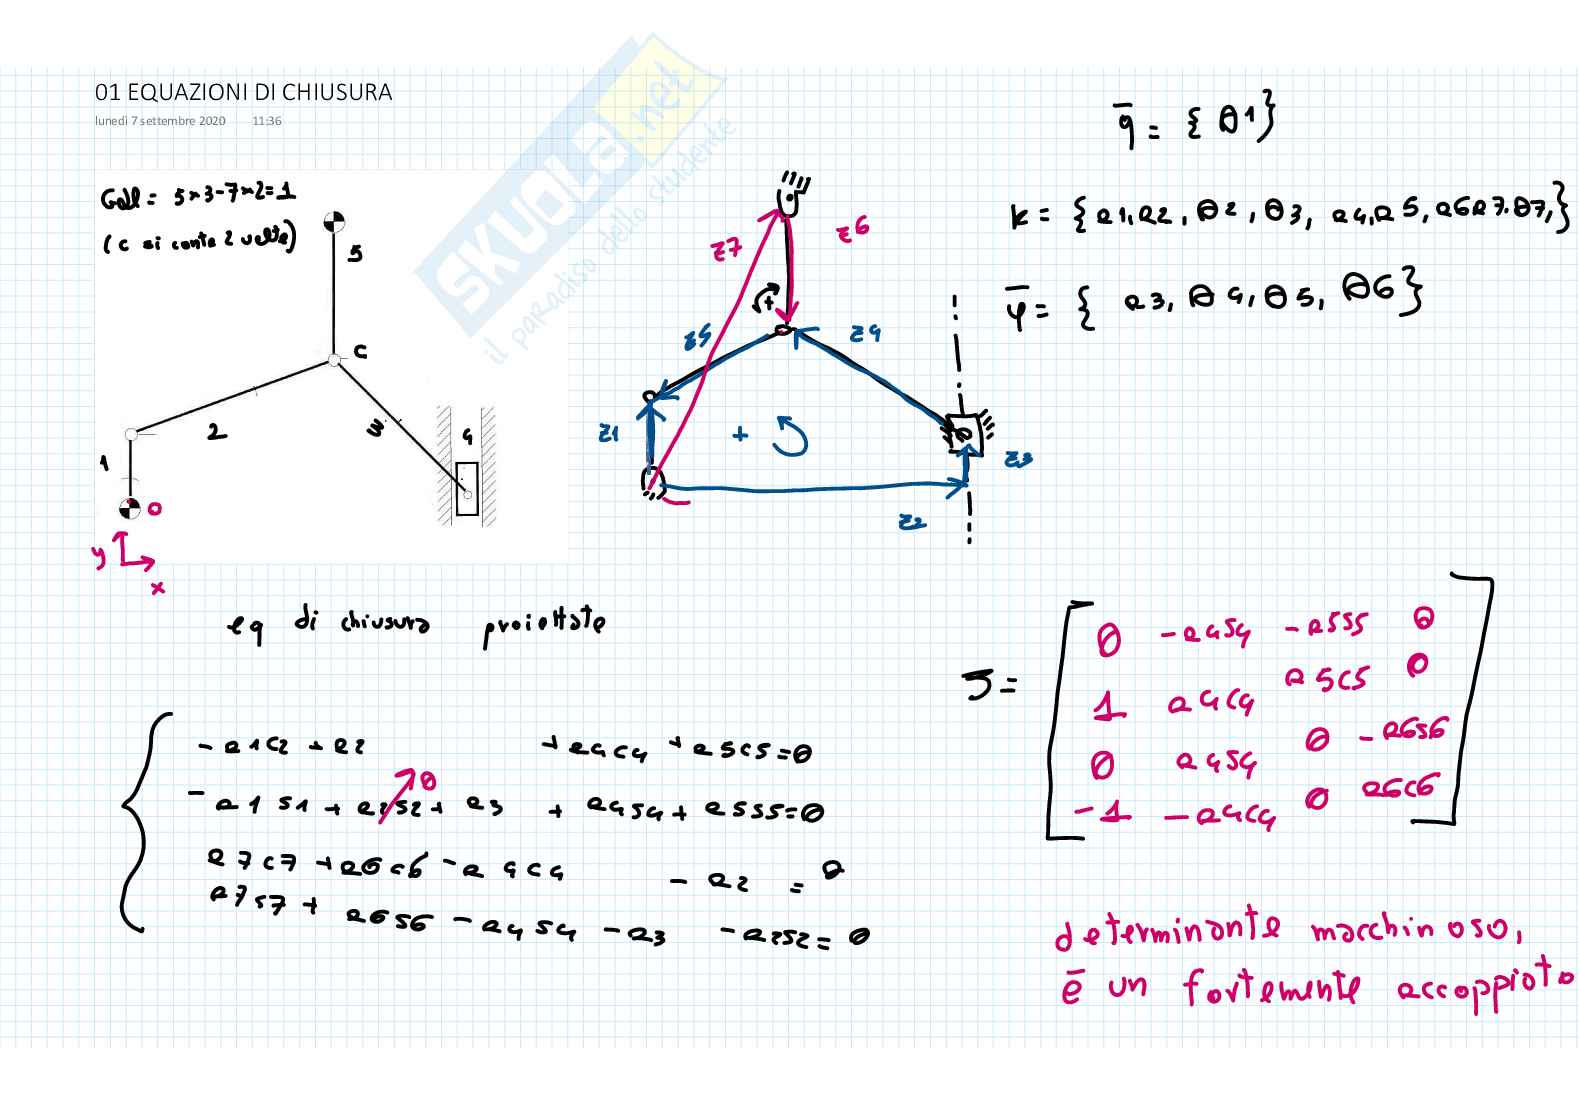 01 EQUAZIONI DI CHIUSURA
lunedì 7 settembre 2020 11:36
SKUOLA.net
il paradiso dello studente
Gdl = 5×3-7×2=1
(C si conta 2 volte)
5
C
2
3
4
1
O
y
x
z7
z6
+
z5
z4
z1
+
z3
z2
q̅ = { θ1}
k = {a1,a2, θ2, θ3, a4,a5, a6a7.θ7,}
φ̅ = { a3, θ4, θ5, θ6}
eq di chiusura proiettate
-a1c2 + a2 +a4c4 + a5c5=0
-a1s1 + a2s2 + a3 + a4s4 + a5s5=0
0
a7c7 + a6c6 - a4c4 - a2 = 0
a7s7 + a6s6 - a4s4 - a3 - a2s2 = 0
J =
0 -a4s4 -a5s5 0
1 a4c4 a5c5 0
0 a4s4 0 -a6s6
-1 -a4c4 0 a6c6
determinante macchinoso,
è un fortemente accoppiato